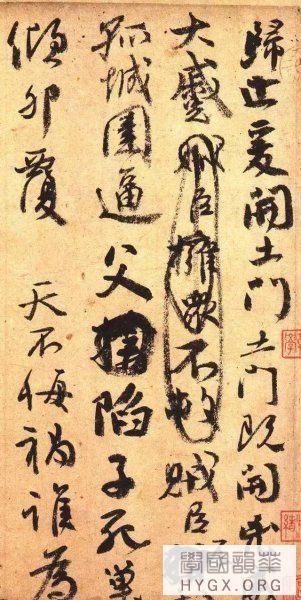 歸止爰開土門土門既開凶
大蹙賊臣擁眾不救賊臣
孤城圍逼父陷子死巢
傾卵覆 天不悔禍誰為
華韻國學
HYGX.ORG